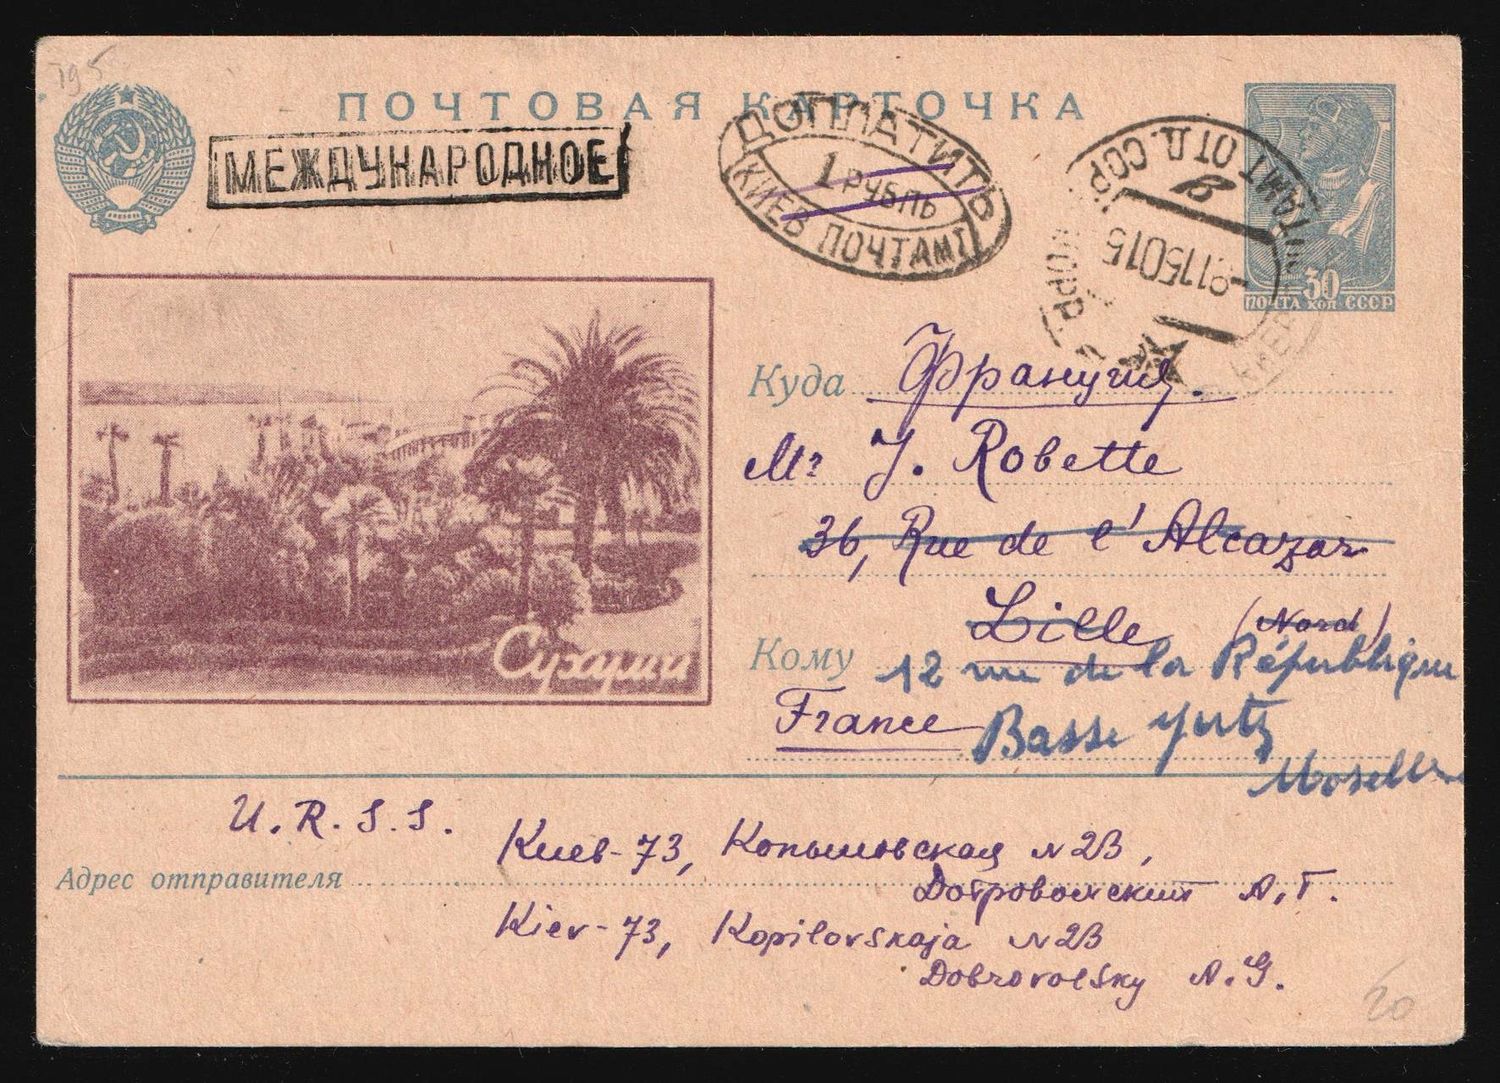 195
ПОЧТОВАЯ КАРТОЧКА
МЕЖДУНАРОДНОЕ
ДОПЛАТИТЬ
1 РУБЛЬ
КИЕВ ПОЧТАМТ
ТАМТ ОТД. ССР
В
-9115015
КОРР.
30
ПОЧТА КОП СССР
Сухуми
Куда Франция.
Mr J. Robette
36, Rue de l'Alcazar
Lille (Nord)
Кому 12 rue de la République
France Basse Yutz
Moselle
U.R.S.S.
Киев-73, Копыловская N 23,
Адрес отправителя Добровольский А.Г.
Kiev-73, Kopilovskaja N 23
Dobrovolsky A.G.
20